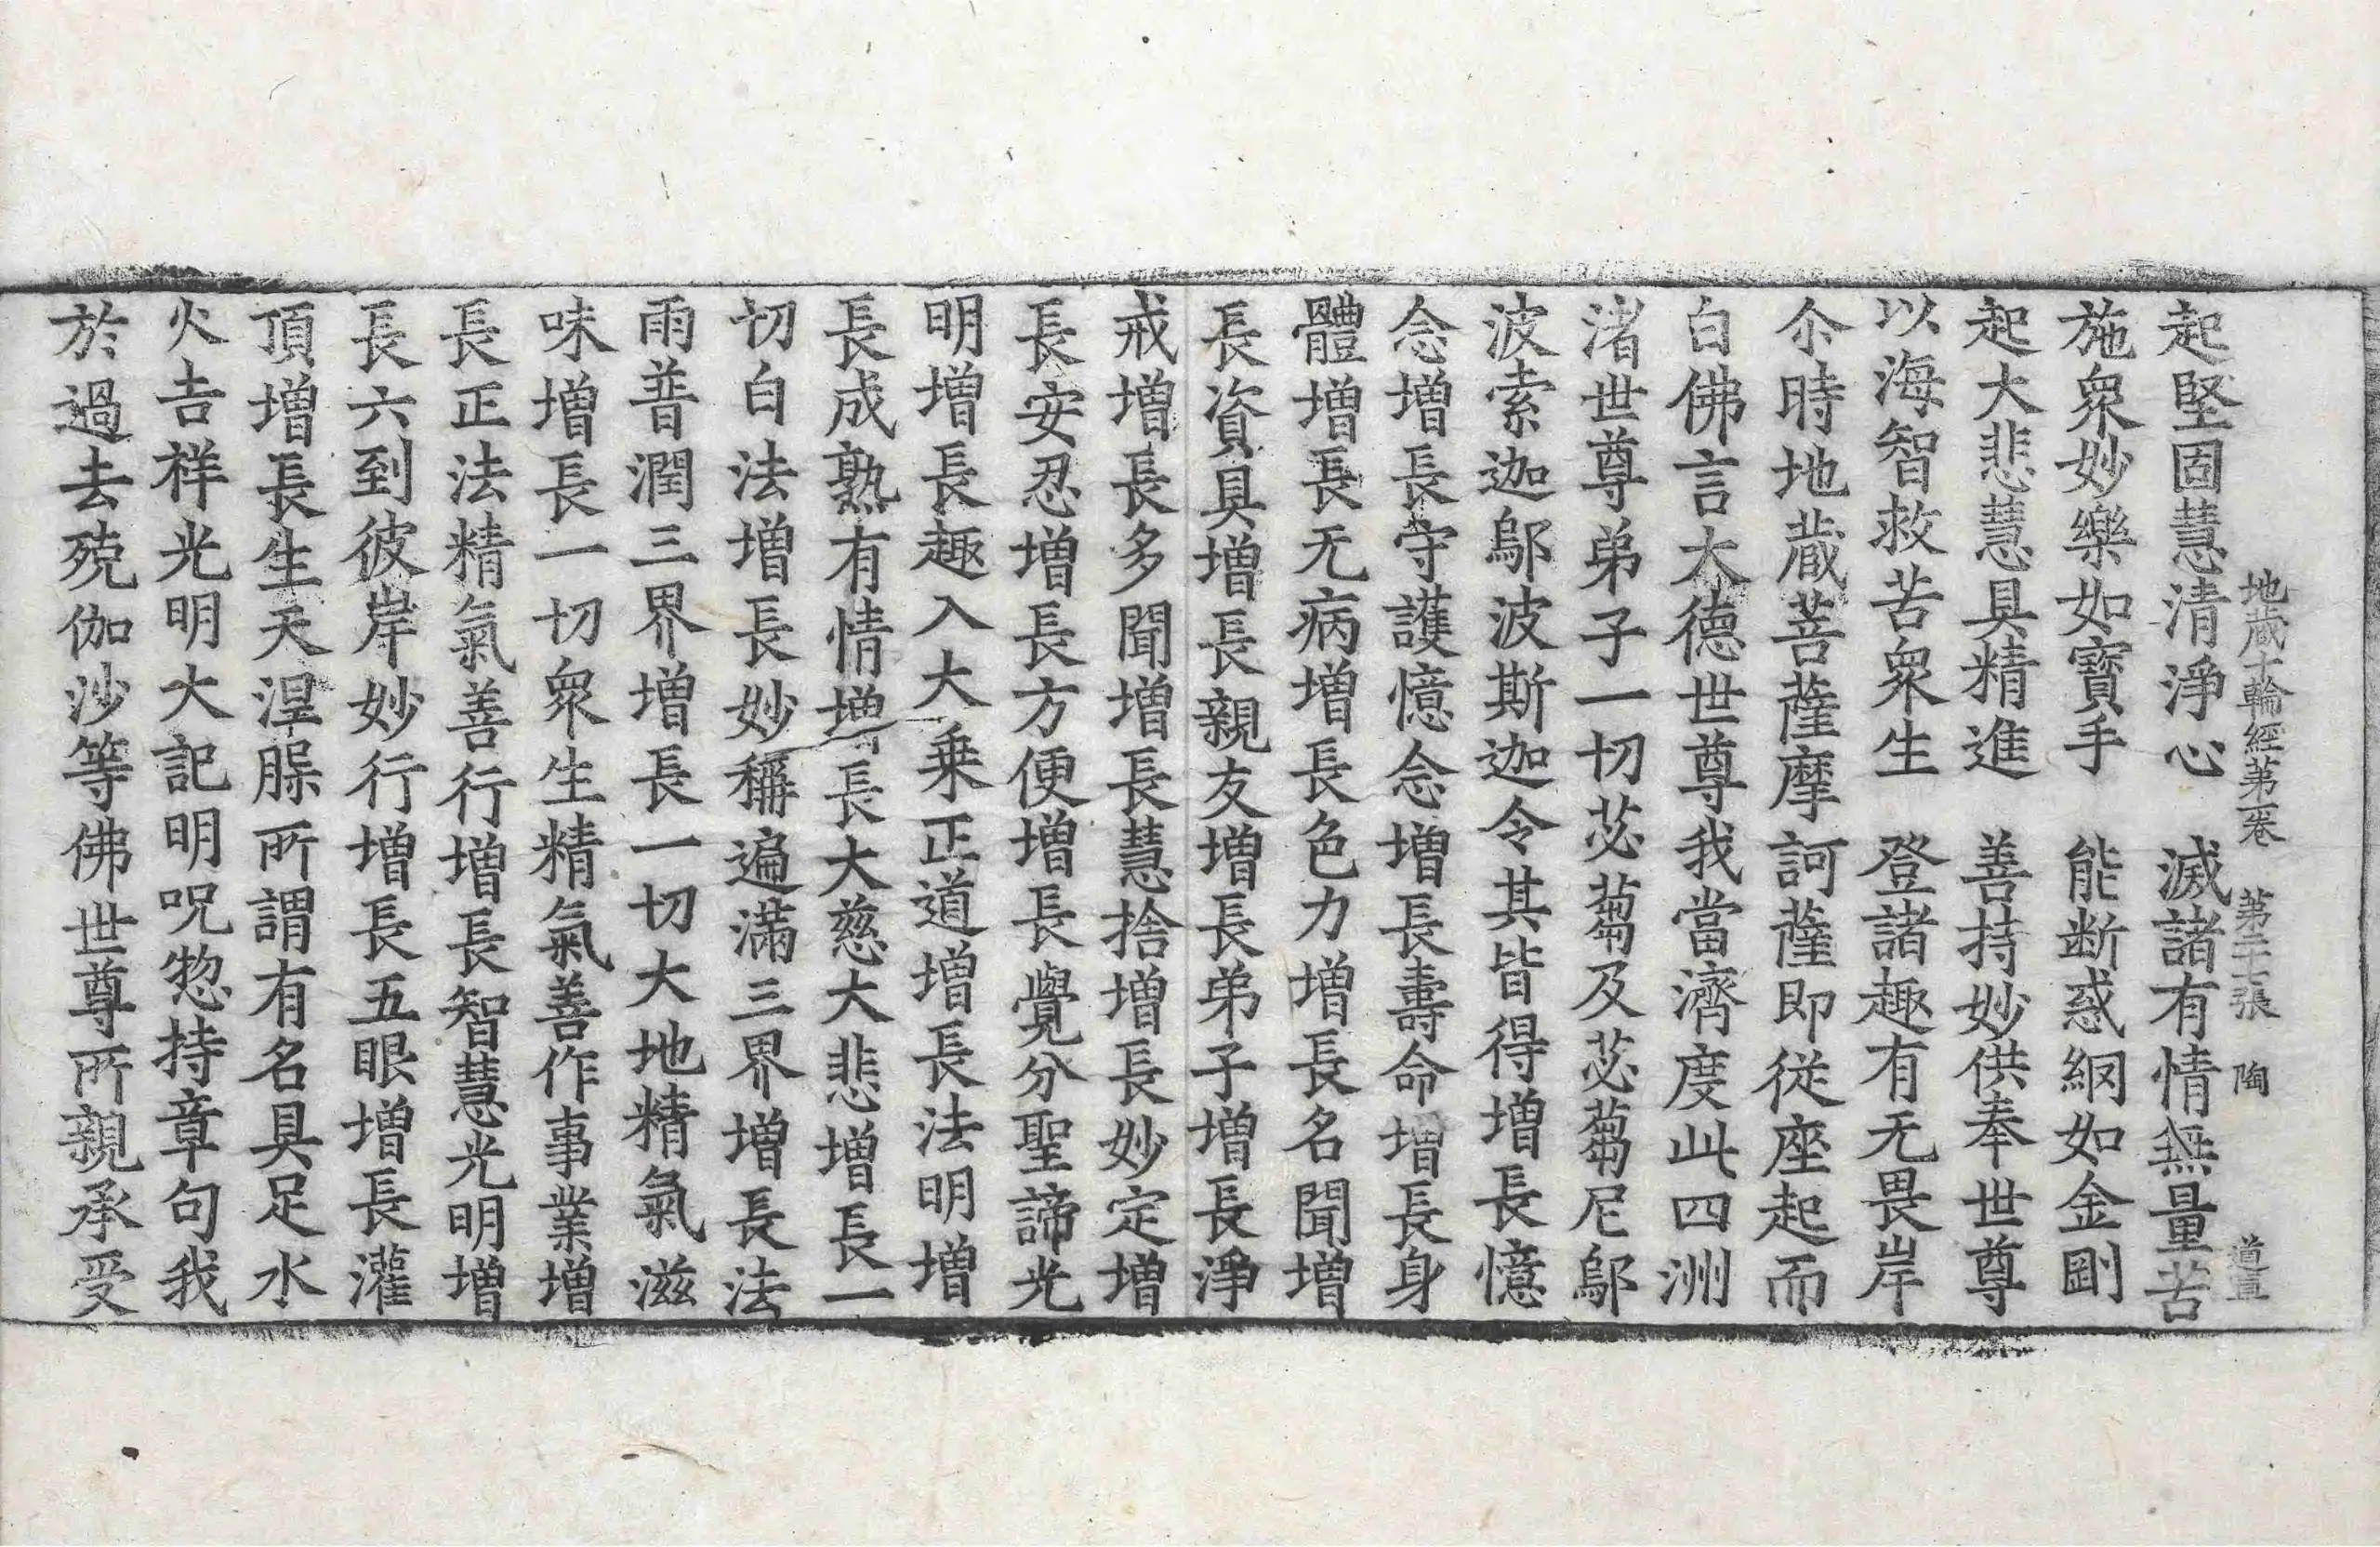 地藏十輪經第一卷 第二十七張 陶 道直
起堅固慧清淨心 滅諸有情無量苦
施衆妙樂如寶手 能断惑網如金剛
起大悲慧具精進 善持妙供奉世尊
以海智救苦衆生 登諸趣有无畏岸
尒時地藏菩薩摩訶薩即從座起而
白佛言大德世尊我當濟度此四洲
渚世尊弟子一切苾蒭及苾蒭尼鄔
波索迦鄔波斯迦令其皆得增長憶
念增長守護憶念增長壽命增長身
體增長无病增長色力增長名聞增
長資具增長親友增長弟子增長淨
戒增長多聞增長慧捨增長妙定增
長安忍增長方便增長覺分聖諦光
明增長趣入大乗正道增長法明增
長成熟有情增長大慈大悲增長一
切白法增長妙稱遍滿三界增長法
雨普潤三界增長一切大地精氣滋
味增長一切衆生精氣善作事業增
長正法精氣善行增長智慧光明增
長六到彼岸妙行增長五眼增長灌
頂增長生天涅脲所謂有名具足水
火吉祥光明大記明呪惣持章句我
於過去殑伽沙等佛世尊所親承受